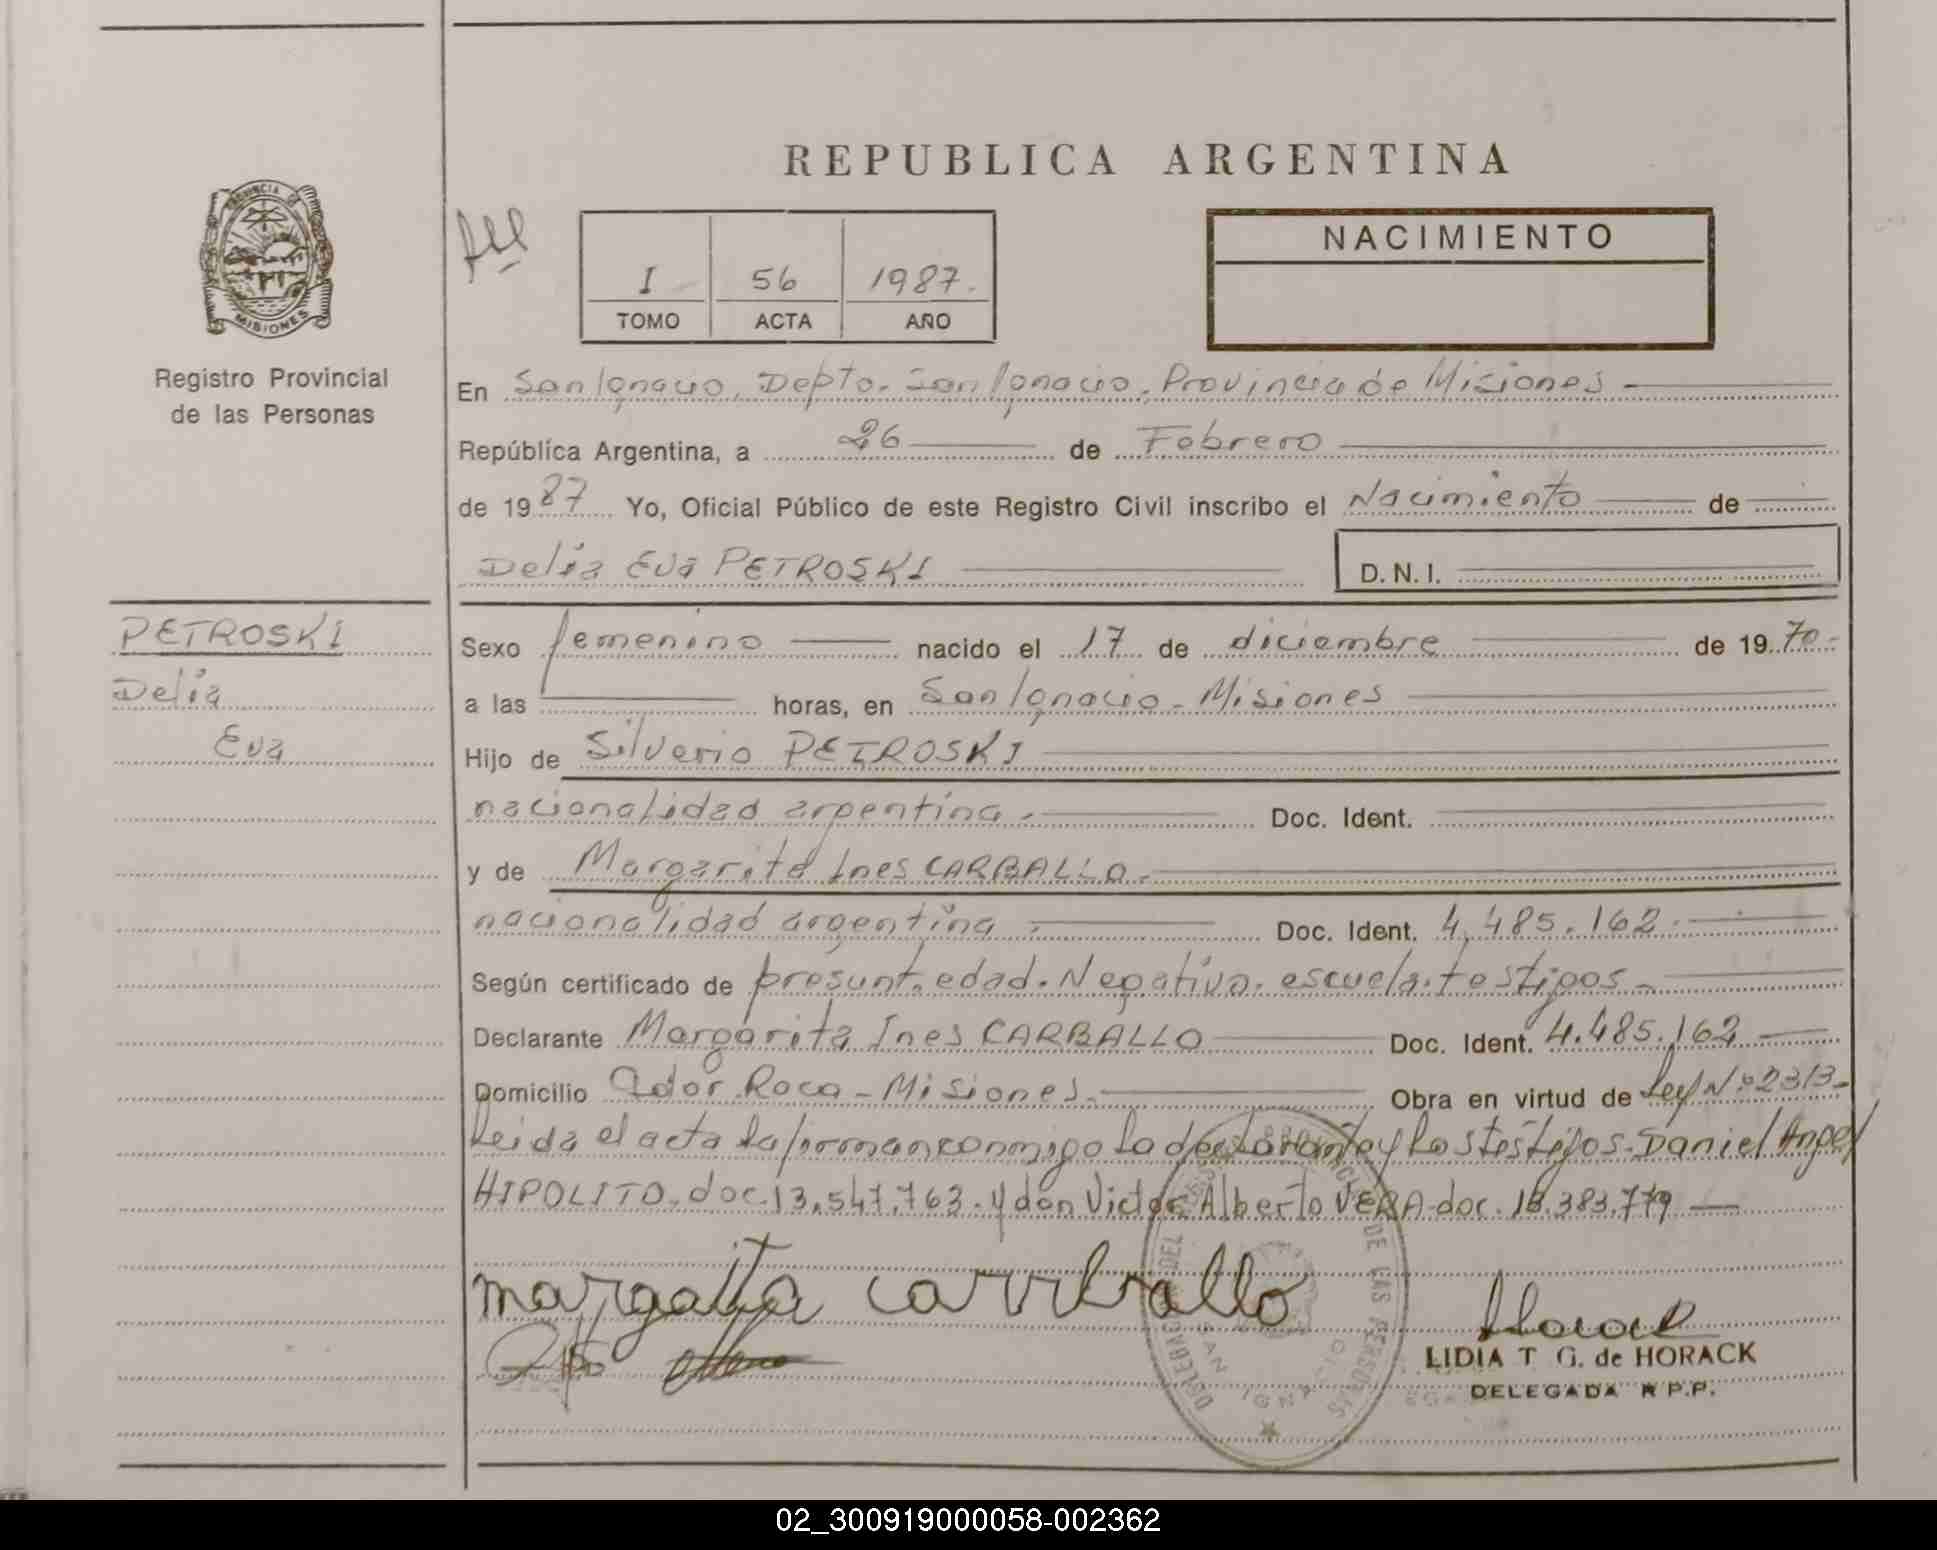 REPUBLICA ARGENTINA
PROVINCIA DE
MISIONES
I 56 1987.
TOMO ACTA AÑO
NACIMIENTO
Registro Provincial
de las Personas
En San Ignacio, Depto. San Ignacio, Provincia de Misiones
República Argentina, a 26 de Febrero
de 1987 Yo, Oficial Público de este Registro Civil inscribo el Nacimiento de
Delia Eva PETROSKI D.N.I.
PETROSKI
Delia
Eva
Sexo femenino nacido el 17 de diciembre de 1970.
a las horas, en San Ignacio - Misiones
Hijo de Silverio PETROSKI
nacionalidad argentina. Doc. Ident.
y de Margarita Ines CARBALLO.
nacionalidad argentina. Doc. Ident. 4.485.162.
Según certificado de presunt. edad. Negativo. escuela. testigos.
Declarante Margarita Ines CARBALLO Doc. Ident. 4.485.162
Domicilio Gdor. Roca - Misiones. Obra en virtud de Ley Nº 2313.
Leida el acta la forman conmigo la declarante y los testigos. Daniel Angel
HIPOLITO. doc. 13.547.763. y don Victor Alberto VERA doc. 13.383.779
margaita carrballo
Horack
LIDIA T G. de HORACK
DELEGADA R P.P.
DELEGACION DEL REGISTRO PROVINCIAL DE LAS PERSONAS
SAN IGNACIO
02_300919000058-002362